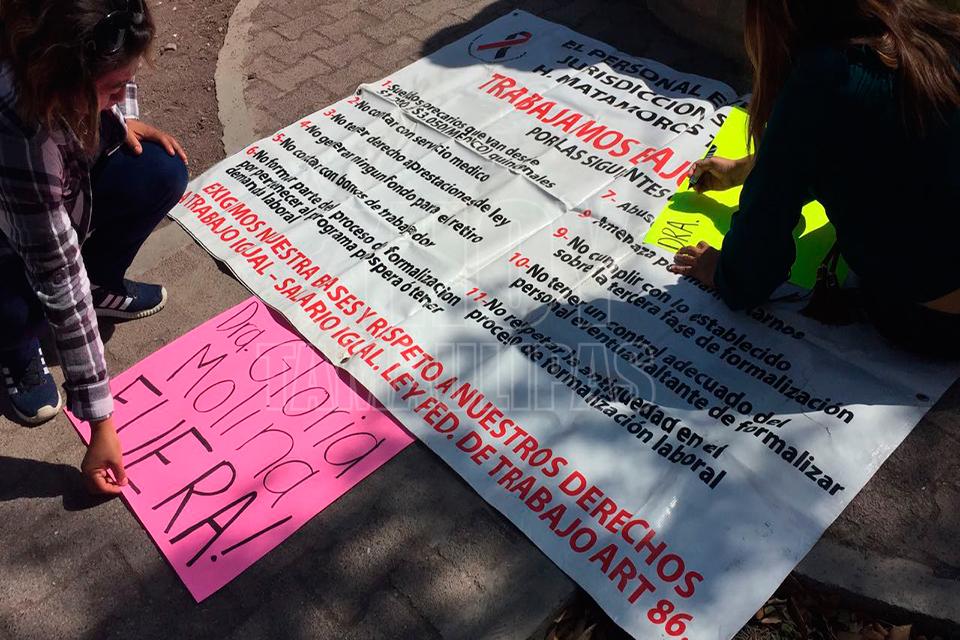 EL PERSONAL E
JURISDICCION S
H. MATAMOROS T
TRABAJAMOS BAJO
POR LAS SIGUIENTES
1-Sueldos precarios que van desde
$1,200/$3,050/MENOS quincenales
2-No contar con servicio medico
3-No tener derecho a prestaciones de ley
4-No generar ningun fondo para el retiro
5-No contar con bonos de trabajador
6-No formar parte del proceso de formalización
por pertenecer al programa prospera ó tener
demanda laboral
7- Abus
9- Amenaza
9- No cumplir con lo establecido
sobre la tercera fase de formalización
10-No tener un control adecuado del
personal eventual faltante de formalizar
11-No respetar la antigüedad en el
proceso de formalización laboral
EXIGIMOS NUESTRA BASES Y RESPETO A NUESTROS DERECHOS
A TRABAJO IGUAL - SALARIO IGUAL. LEY FED. DE TRABAJO ART 86.
DRA.
Dra. Gloria
Molina
FUERA!
HOY
TAMAULIPAS